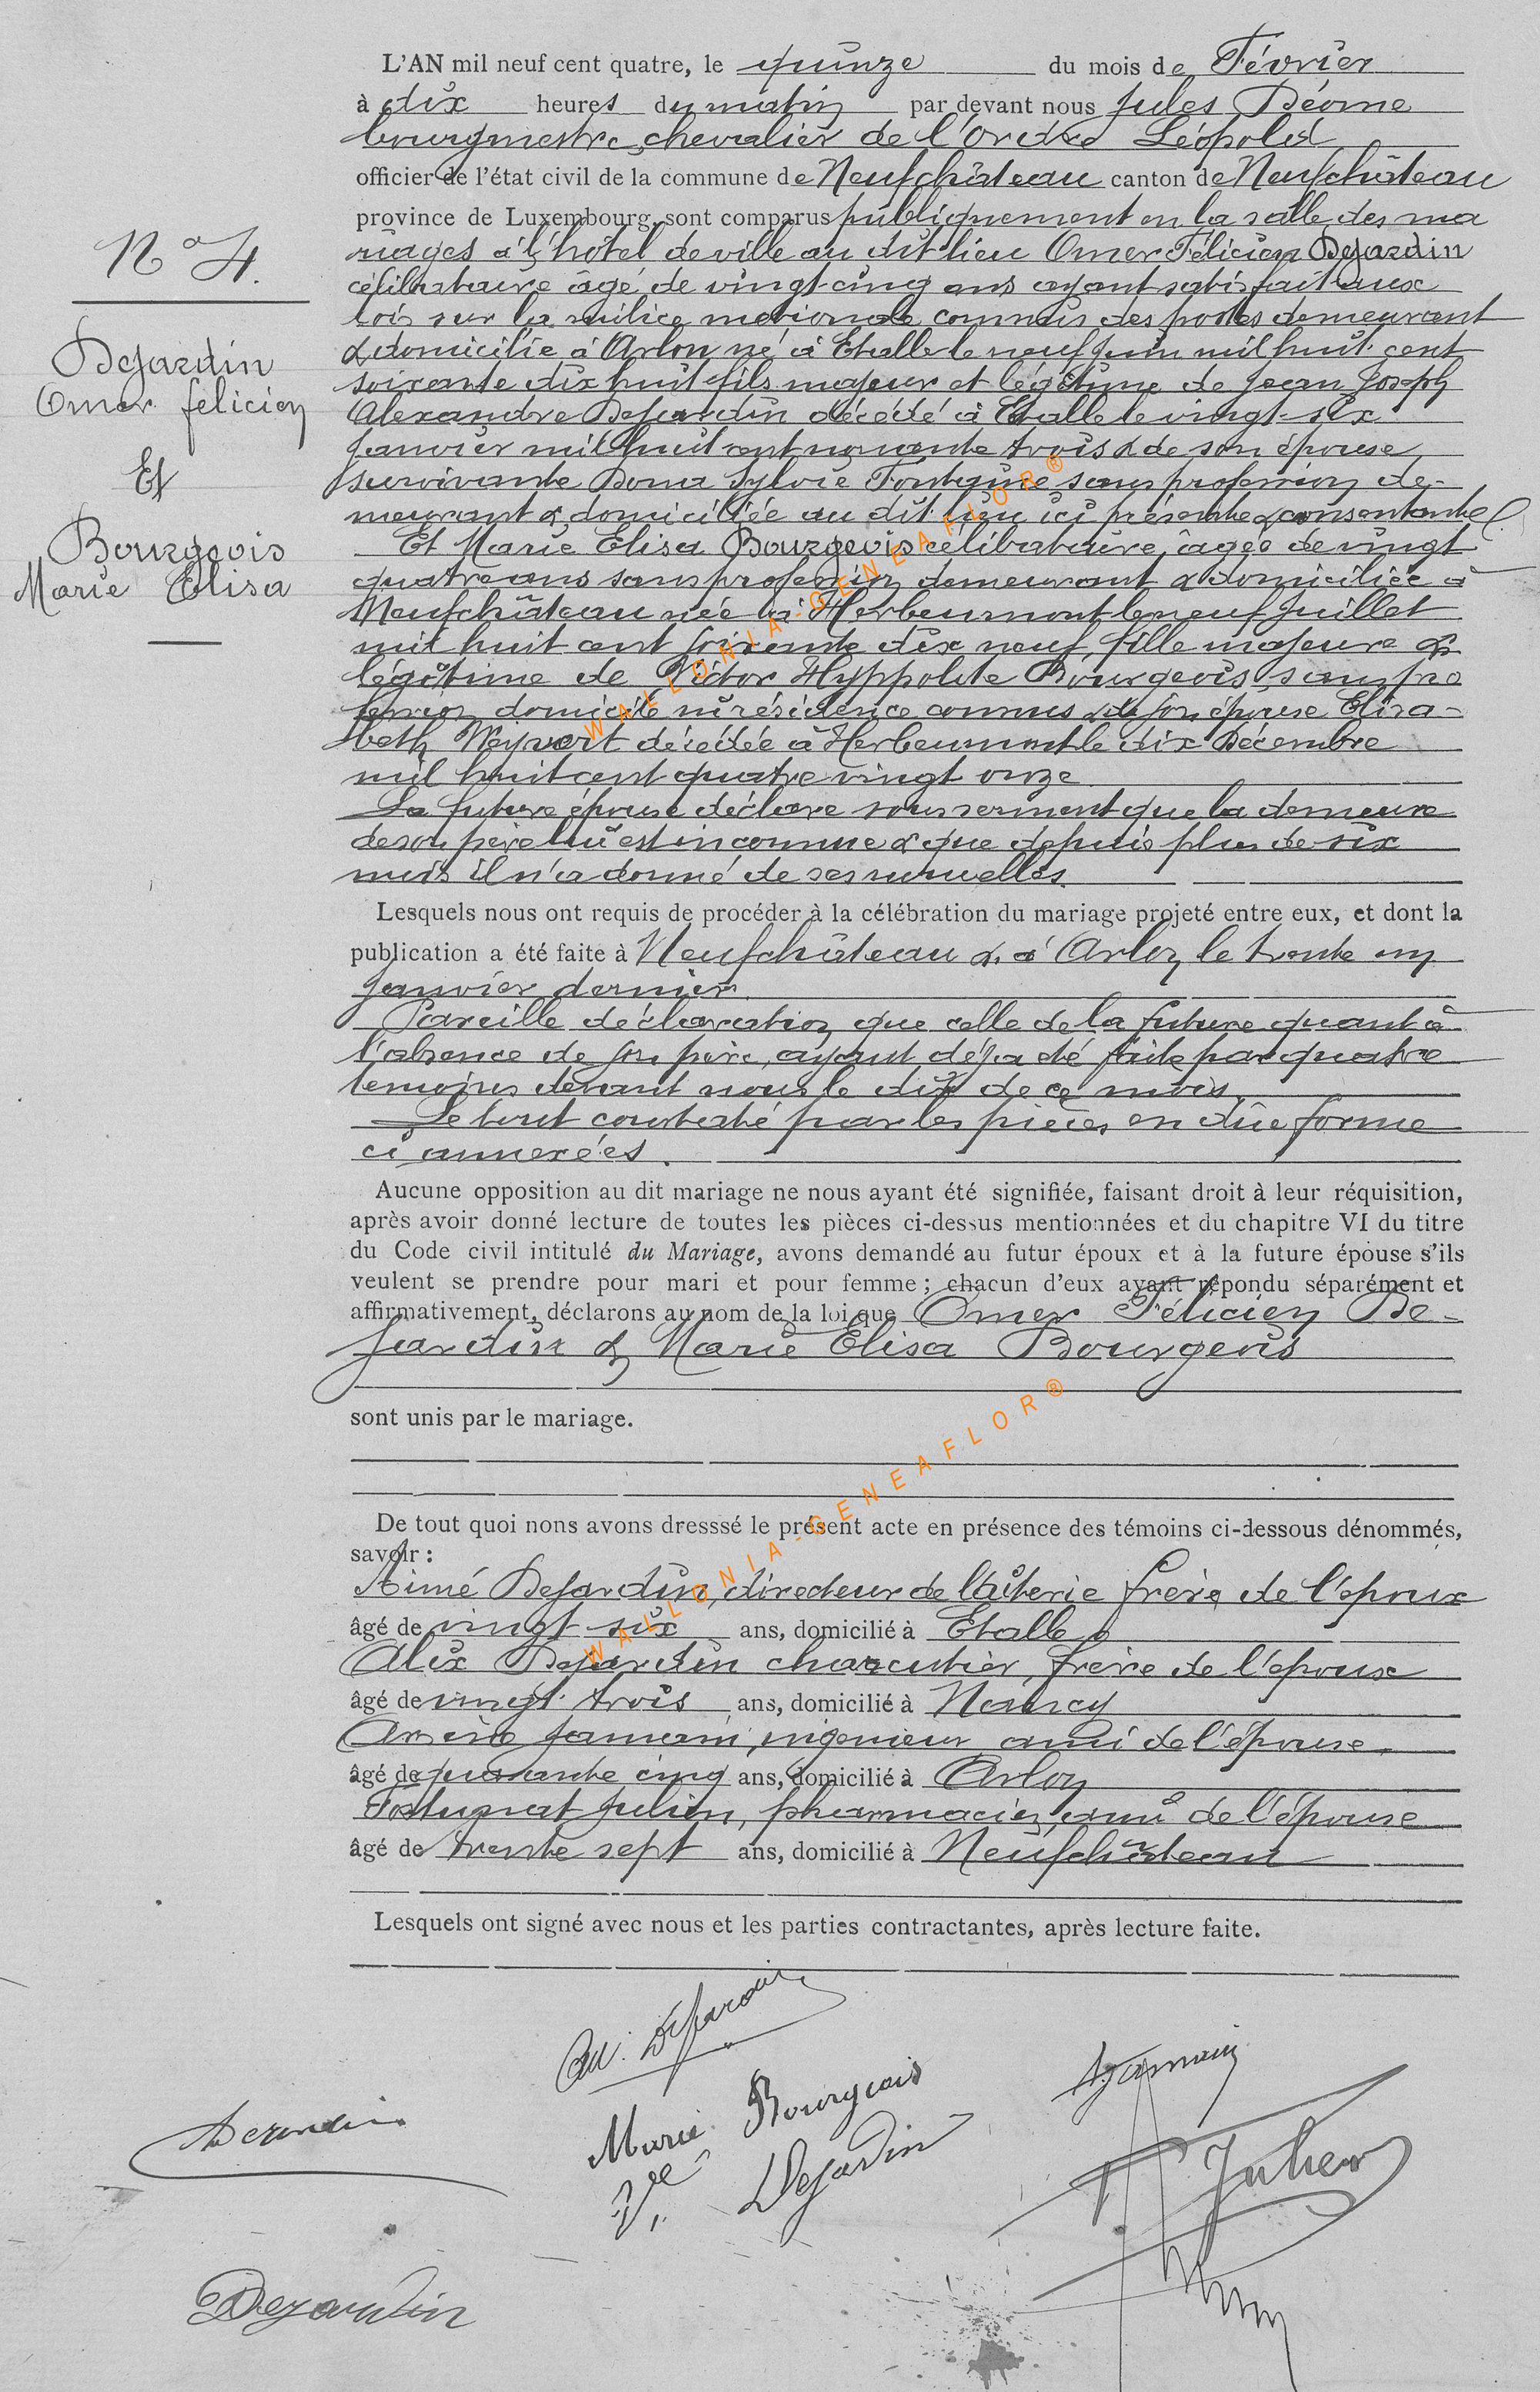 L'AN mil neuf cent quatre, le quinze du mois de Février
à dix heures du matin par devant nous Jules Déome
bourgmestre, chevalier de l'Ordre Léopold
officier de l'état civil de la commune de Neufchâteau canton de Neufchâteau
province de Luxembourg, sont comparus publiquement en la salle des ma
riages à l'hôtel de ville au dit lieu Omer Félicien Dejardin
célibataire âgé de vingt-cinq ans ayant satisfait aux
lois sur la milice nationale commis des postes demeurant
& domicilié à Arlon né à Etalle le neuf Juin mil huit cent
soixante dix huit fils majeur et légitime de Jean Joseph
Alexandre Dejardin décédé à Etalle le vingt-six
Janvier mil huit cent nonante trois & de son épouse
survivante Dona Sylvie Fontaine sans profession de-
meurant & domiciliée au dit lieu ici présente & consentante
Et Marie Elisa Bourgeois célibataire, âgée de vingt
quatre ans sans profession demeurant & domiciliée à
Neufchâteau née à Herbeumont le neuf Juillet
mil huit cent soixante dix neuf, fille majeure &
légitime de Victor Hyppolite Bourgeois, sans pro
fession domicile ni résidence connus & de son épouse Elisa-
beth Weyvert décédée à Herbeumont le dix Décembre
mil huit cent quatre vingt onze
La future épouse déclare sous serment que la demeure
de son père lui est inconnue & que depuis plus de six
mois il n'a donné de ses nouvelles.
Lesquels nous ont requis de procéder à la célébration du mariage projeté entre eux, et dont la
publication a été faite à Neufchâteau & à Arlon le trente un
Janvier dernier.
Pareille déclaration que celle de la future quant à
l'absence de son père, ayant déjà été faite par quatre
temoins devant nous le dix de ce mois.
Le tout constaté par les pièces en due forme
ci annexées.
Aucune opposition au dit mariage ne nous ayant été signifiée, faisant droit à leur réquisition,
après avoir donné lecture de toutes les pièces ci-dessus mentionnées et du chapitre VI du titre
du Code civil intitulé du Mariage, avons demandé au futur époux et à la future épouse s'ils
veulent se prendre pour mari et pour femme ; chacun d'eux ayant répondu séparément et
affirmativement, déclarons au nom de la loi que Omer Félicien De-
jardin & Marie Elisa Bourgeois
sont unis par le mariage.
De tout quoi nons avons dresssé le présent acte en présence des témoins ci-dessous dénommés,
savoir :
Aimé Dejardin, directeur de laiterie frère de l'époux
âgé de vingt six ans, domicilié à Etalle
Alix Dejardin charcutier, frère de l'époux
âgé de vingt trois ans, domicilié à Nancy
Jamain, ingénieur ami de l'épouse
âgé de quarante cinq ans, domicilié à Arlon
Fortunat Julien, pharmacien, ami de l'épouse
âgé de trente sept ans, domicilié à Neufchâteau
Lesquels ont signé avec nous et les parties contractantes, après lecture faite.
N° 4.
Dejardin
Omer félicien
Et
Bourgeois
Marie Elisa
Dejardin
Marie Bourgeois
AJamain
Dejardin
Vve Dejardin
F Julien
Dejardin
WALLONIA-GENEAFLOR®
WALLONIA-GENEAFLOR®